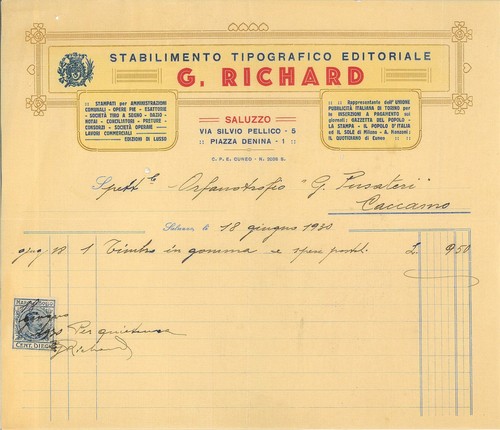 STABILIMENTO TIPOGRAFICO EDITORIALE
G. RICHARD
:: STAMPATI per AMMINISTRAZIONI
COMUNALI - OPERE PIE - ESATTORIE
- SOCIETÀ TIRO A SEGNO - DAZIO -
NOTAI - CONCILIATORI - PRETURE -
CONSORZI - SOCIETÀ OPERAIE -
LAVORI COMMERCIALI
EDIZIONI DI LUSSO
SALUZZO
VIA SILVIO PELLICO - 5
:: PIAZZA DENINA - 1 ::
C. P. E. CUNEO - N.
:: Rappresentante dell'UNIONE
PUBBLICITÀ ITALIANA DI TORINO per
le INSERZIONI A PAGAMENTO sui
giornali: GAZZETTA DEL POPOLO -
LA STAMPA - IL POPOLO D'ITALIA
ed IL SOLE di Milano - A. Manzoni:
IL QUOTIDIANO di Cuneo
Spett.le Orfanotrofio "G. Pusateri"
Caccamo
Saluzzo, li 18 giugno 1930
giug. 18 1 Timbro in gomma e spese postali L. 9,50
MARCA DA BOLLO
Per quietanza
Richard
CENT. DIECI